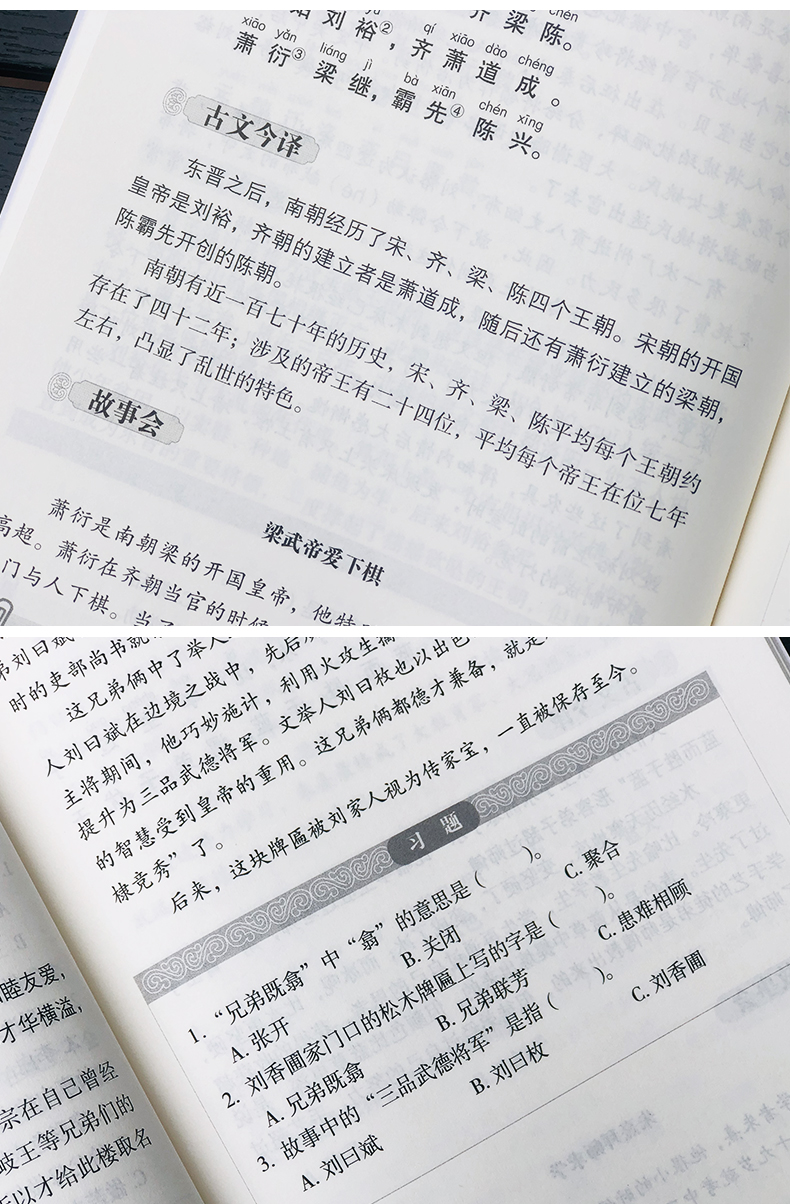 chén
刘裕②
梁陈。
qí xiāo dào chéng
，齐萧道成。
xiāo yǎn liáng jì bà xiān chén xīng
萧衍③梁继，霸先④陈兴。
古文今译
东晋之后，南朝经历了宋、齐、梁、陈四个王朝。宋朝的开国
皇帝是刘裕，齐朝的建立者是萧道成，随后还有萧衍建立的梁朝，
陈霸先开创的陈朝。
南朝有近一百七十年的历史，宋、齐、梁、陈平均每个王朝约
存在了四十二年；涉及的帝王有二十四位，平均每个帝王在位七年
左右，凸显了乱世的特色。
故事会
梁武帝爱下棋
萧衍是南朝梁的开国皇帝，他特
高超。萧衍在齐朝当官的时候
门与人下棋。当了
弟刘曰斌
时的吏部尚书就
这兄弟俩中了举人
人刘曰斌在边境之战中，先后
主将期间，他巧妙施计，利用火攻生擒
提升为三品武德将军。文举人刘曰枚也以出色
的智慧受到皇帝的重用。这兄弟俩都德才兼备，就是
棣竞秀”了。
后来，这块牌匾被刘家人视为传家宝，一直被保存至今。
习题
1. “兄弟既翕”中“翕”的意思是（ ）。
A. 张开 B. 关闭 C. 聚合
2. 刘香圃家门口的松木牌匾上写的字是（ ）。
A. 兄弟既翕 B. 兄弟联芳 C. 患难相顾
3. 故事中的“三品武德将军”是指（ ）。
A. 刘曰斌 B. 刘曰枚 C. 刘香圃
睦友爱，
才华横溢，
宗在自己曾经
岐王等兄弟们的
所以才给此楼取名